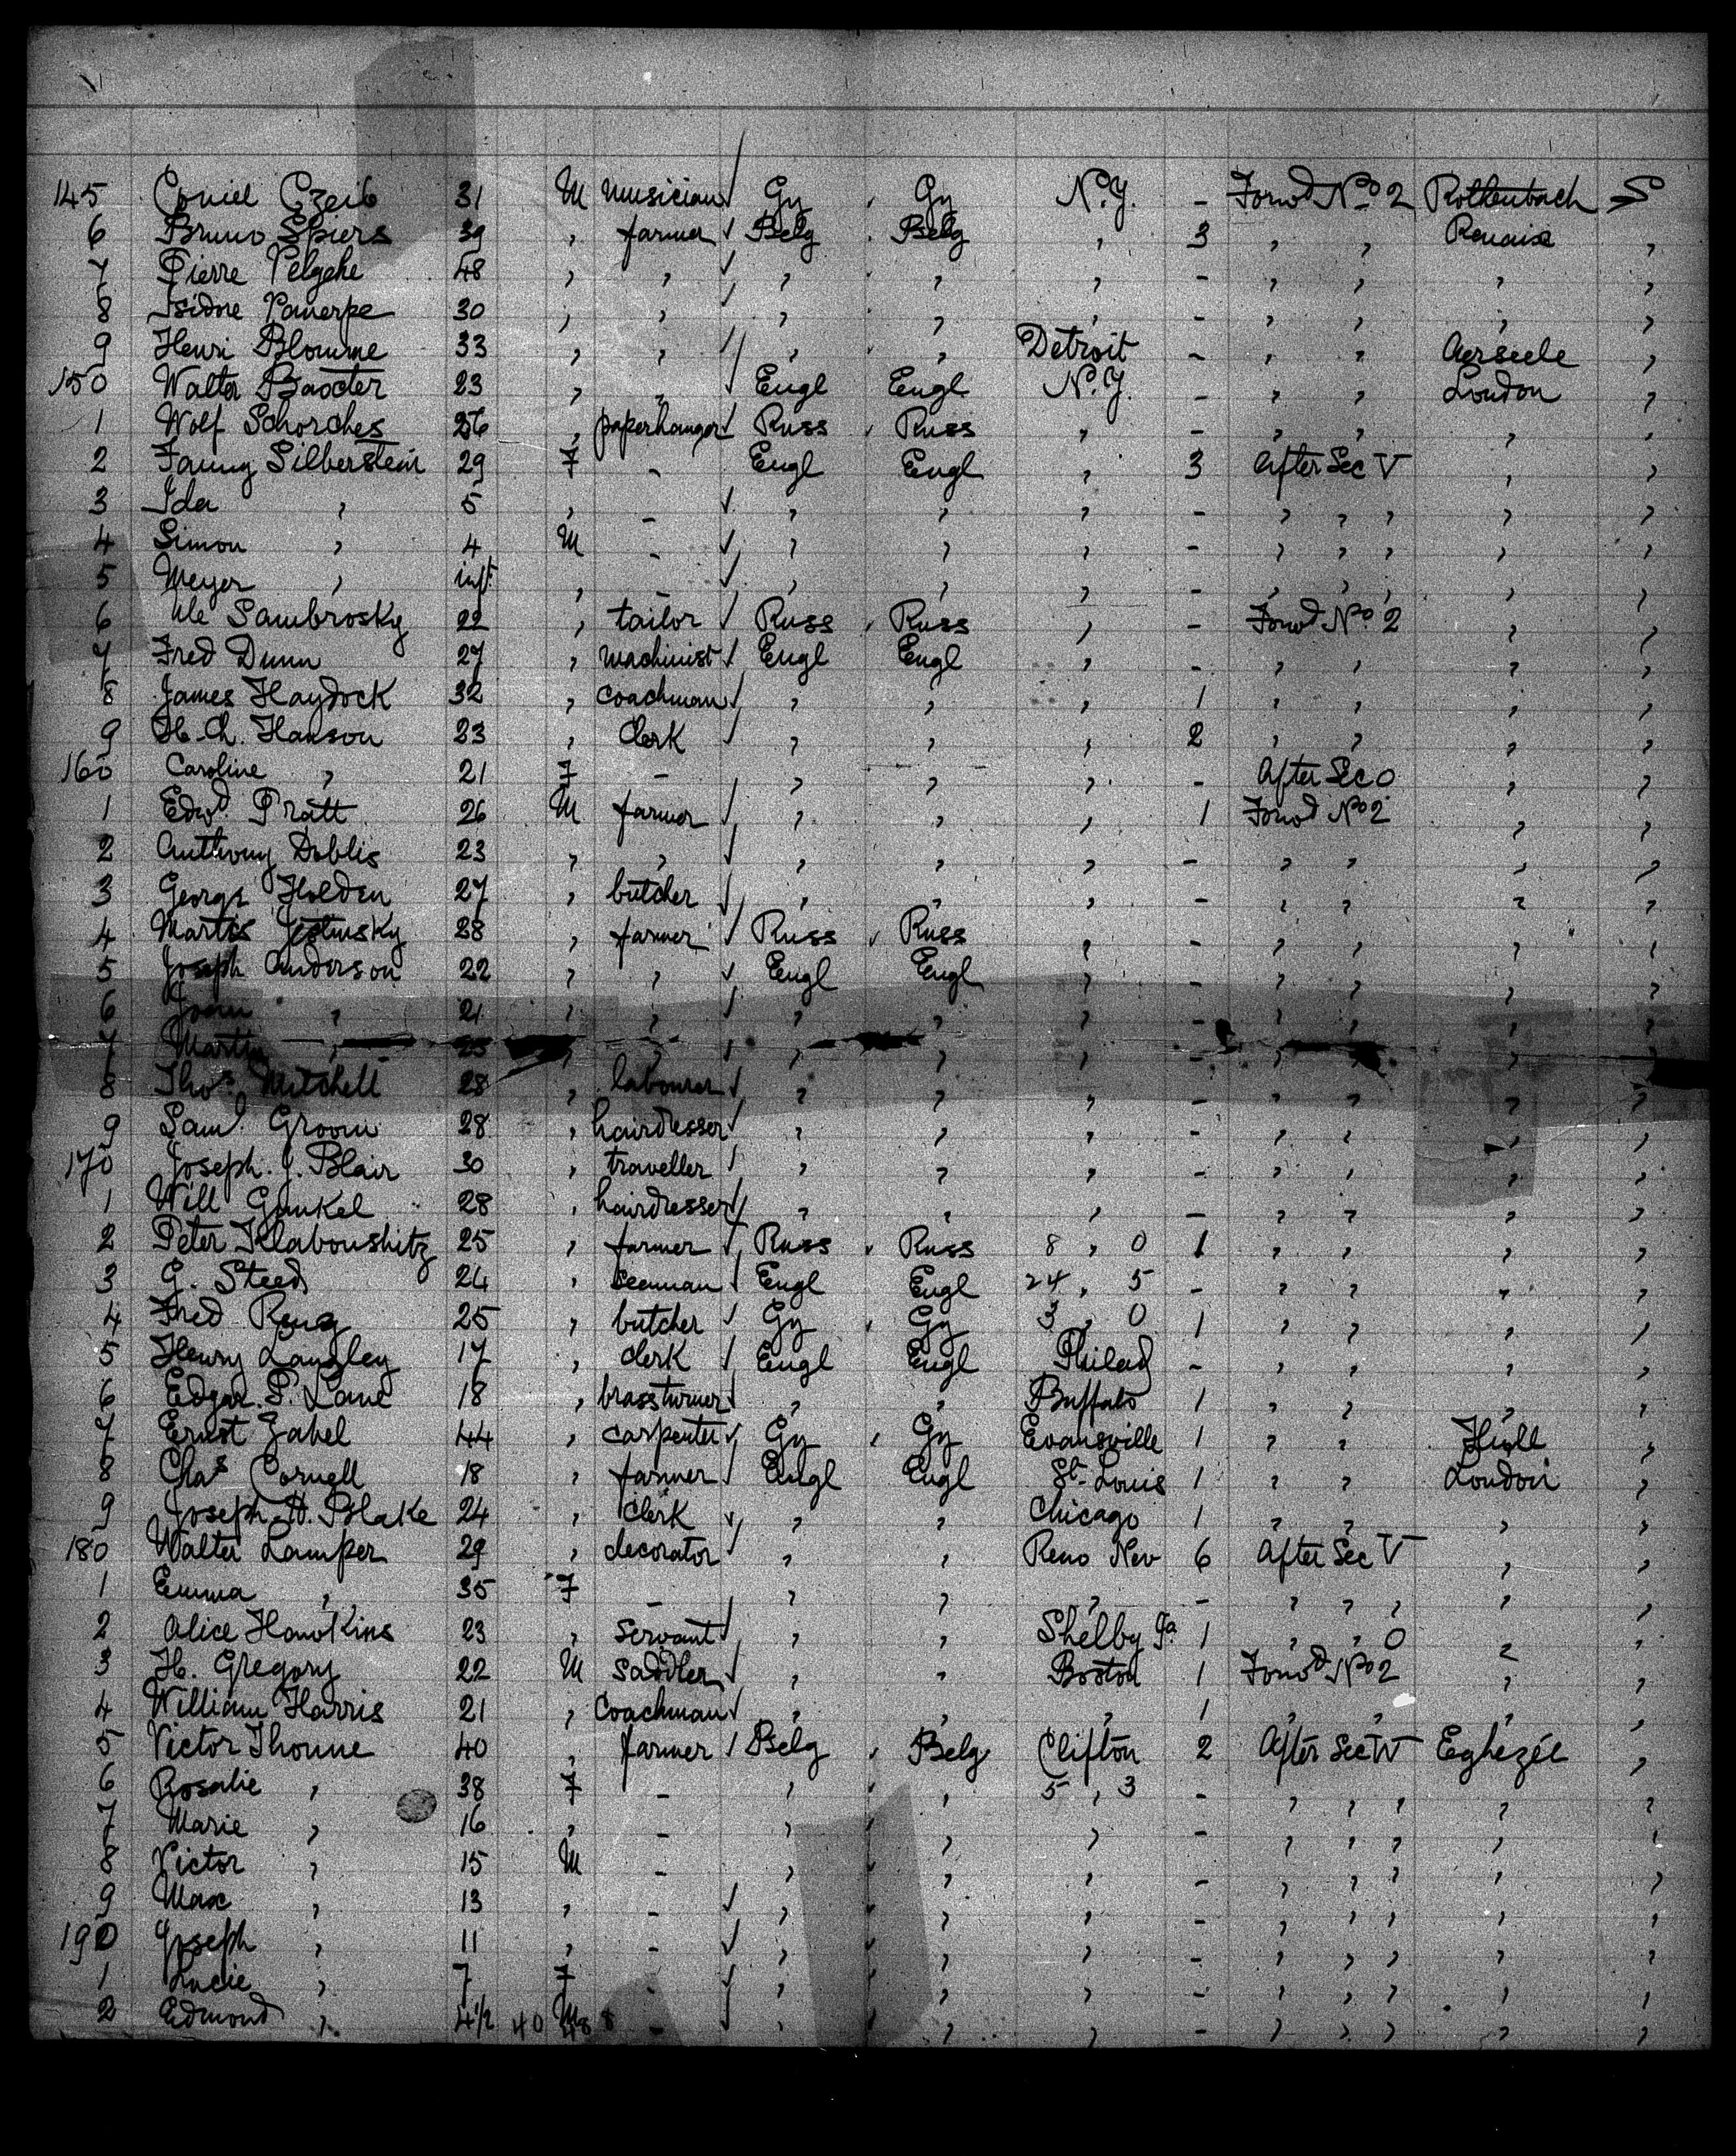 145 Coniel Czeib 31 M musician ✓ Gy , Gy N.Y. - Forwd No 2 Rothenbach S
6 Bruno Spiers 39 , farmer ✓ Belg , Belg , 3 , , Renaix ,
7 Pierre Pelgehe 48 , , ✓ , , , - , , , ,
8 Isidore 30 , , ✓ , , , - , , , ,
9 Henri Blomme 33 , , ✓ , , Detroit - , , Aerseele ,
150 Walter Baxter 23 , , ✓ Engl Engl N.Y. - , , London ,
1 Wolf Schorches 26 , paperhanger ✓ Russ , Russ , - , , , ,
2 Fanny Silberstein 29 F - Engl Engl , 3 After Sec V , ,
3 Ida , 5 , - ✓ , , , - , , , , ,
4 Simon , 4 M - ✓ , , , - , , , , ,
5 Meyer , inft , - ✓ , , , - , , , , ,
6 Sambrosky 22 , tailor ✓ Russ , Russ , - Forwd No 2 , ,
7 Fred Dunn 27 , machinist ✓ Engl Engl , - , , , ,
8 James Haydock 32 , coachman ✓ , , , 1 , , , ,
9 H. Ch. Hanson 23 , Clerk ✓ , , , 2 , , , ,
160 Caroline , 21 F - , , , - After Sec O , ,
1 Edwd Pratt 26 M farmer ✓ , , , 1 Forwd No 2 , ,
2 Anthony Doblis 23 , , ✓ , , , - , , , ,
3 George Holden 27 , butcher ✓ , , , - , , , ,
4 Martis 28 , farmer ✓ Russ , Russ , - , , , ,
5 Joseph Anderson 22 , , ✓ Engl Engl , - , , , ,
6 , 21 , , ✓ , , , - , , , ,
7 Martin , 25 , , ✓ , , , - , , , ,
8 Thos Mitchell 28 , labourer ✓ , , , - , , , ,
9 Saml Groom 28 , hairdresser ✓ , , , - , , , ,
170 Joseph. J. Blair 30 , traveller ✓ , , , - , , , ,
1 Will Gunkel 28 , hairdresser ✓ , , , - , , , ,
2 Peter Klaboushitz 25 , farmer ✓ Russ , Russ 8 , 0 1 , , , ,
3 G. Steed 24 , seeman ✓ Engl Engl 24 , 5 - , , , ,
4 Fred 25 , butcher ✓ Gy , Gy 3 , 0 1 , , , ,
5 Henry Langley 17 , clerk ✓ Engl Engl Philad - , , , ,
6 Edgar. P. Lane 18 , brassturner ✓ , , Buffalo 1 , , , ,
7 Ernst Gabel 44 , carpenter ✓ Gy , Gy Evansville 1 , , Hull ,
8 Chas Cornell 18 , farmer ✓ Engl Engl St. Louis 1 , , London ,
9 Joseph. H. Blake 24 , Clerk ✓ , , Chicago 1 , , , ,
180 Walter Lamper 29 , decorator ✓ , , Reno Nev 6 After Sec V , ,
1 Emma , 35 F - , , , - , , , , ,
2 Alice Hawkins 23 , servant ✓ , , Shelby Ja. 1 , , O , ,
3 H. Gregory 22 M saddler ✓ , , Boston 1 Forwd No 2 , ,
4 William Harris 21 , coachman ✓ , , , 1 , , , ,
5 Victor Thonne 40 , farmer ✓ Belg , Belg Clifton 2 After Sec W Eghezée ,
6 Rosalie , 38 F - , , 5 , 3 - , , , , ,
7 Marie , 16 , - , , , - , , , , ,
8 Victor , 15 M - , , , - , , , , ,
9 Max , 13 , - ✓ , , , - , , , , ,
190 Joseph , 11 , - ✓ , , , - , , , , ,
1 Lucie , 7 F - ✓ , , , - , , , , ,
2 Edmond , 4 1/2 40 M - ✓ , , , - , , , , ,